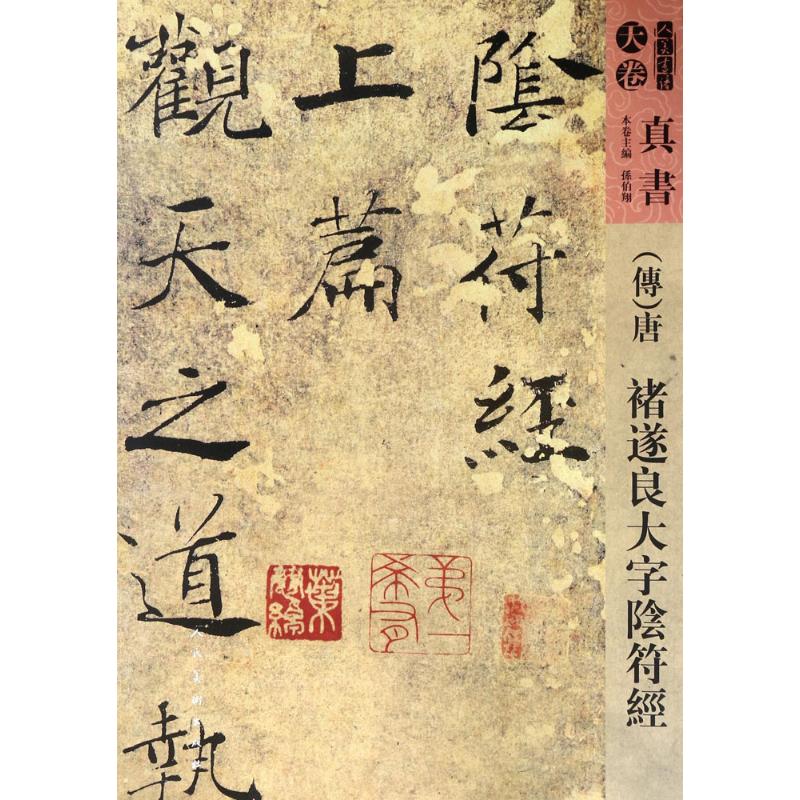 人美書譜
天卷
真書
本卷主編 孫伯翔
(傳)唐 褚遂良大字陰符經
陰符經
上篇
觀天之道執
人民美術出版社